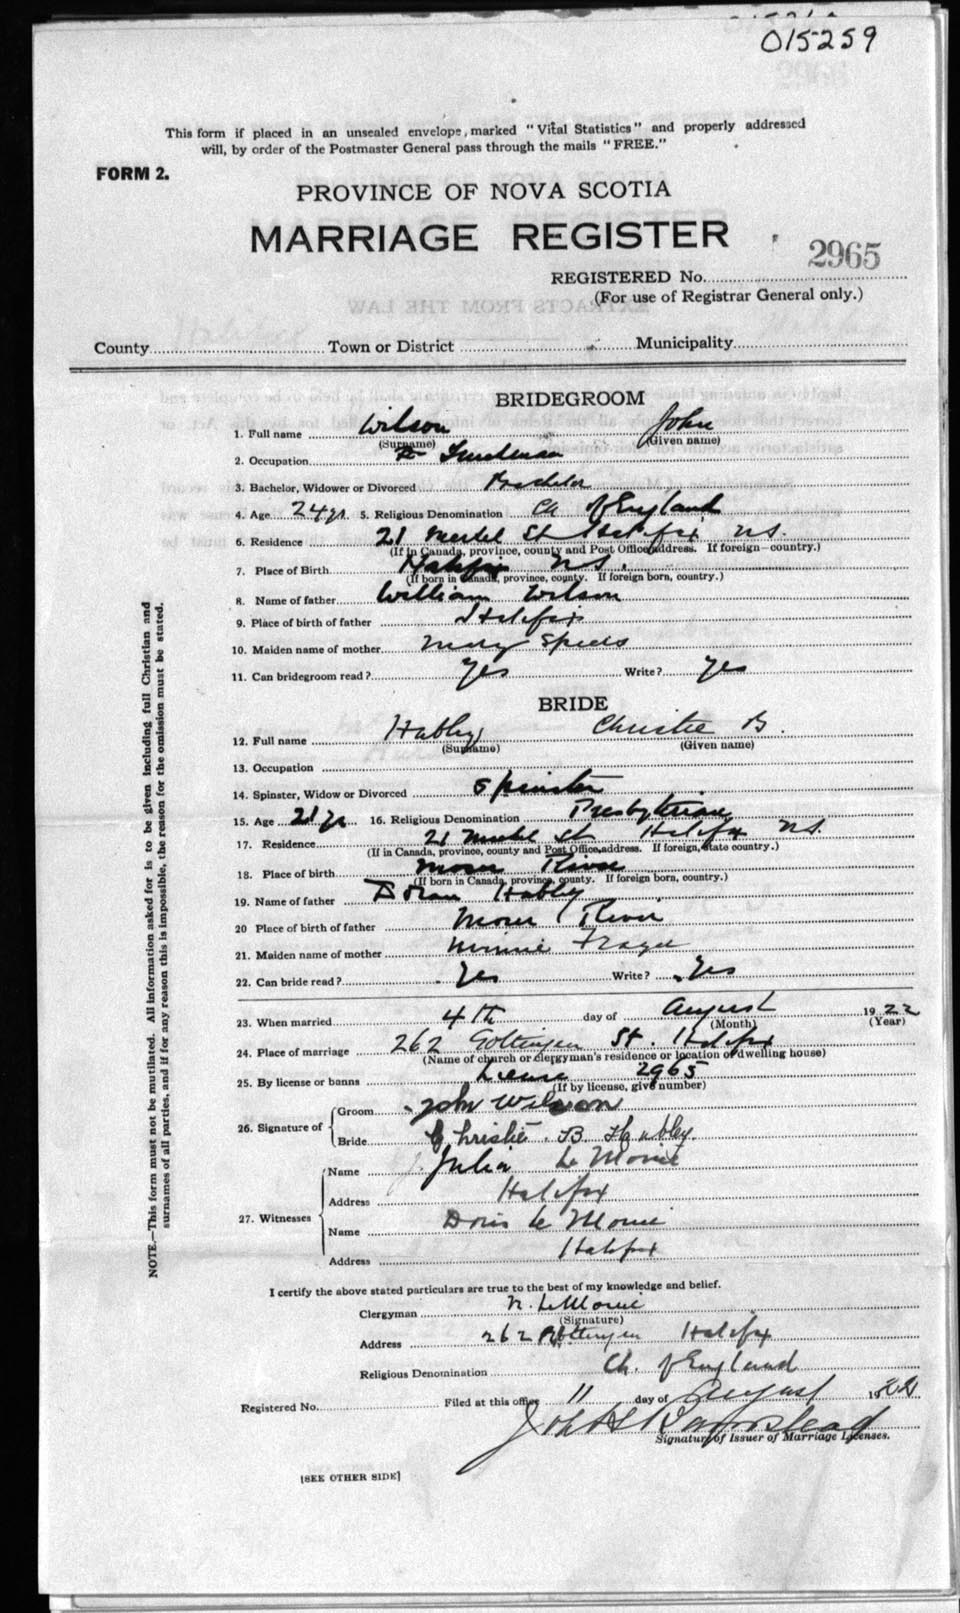 015259
This form if placed in an unsealed envelope, marked "Vital Statistics" and properly addressed
will, by order of the Postmaster General pass through the mails "FREE."
FORM 2.
PROVINCE OF NOVA SCOTIA
MARRIAGE REGISTER
2965
REGISTERED No.
(For use of Registrar General only.)
County Town or District Municipality
BRIDEGROOM
1. Full name Wilson John
(Surname) (Given name)
2. Occupation
3. Bachelor, Widower or Divorced Bachelor
4. Age 24 yr 5. Religious Denomination Ch of England
6. Residence 21 St Halifax N.S.
(If in Canada, province, county and Post Office address. If foreign—country.)
7. Place of Birth Halifax N.S.
(If born in Canada, province, county. If foreign born, country.)
8. Name of father William Wilson
9. Place of birth of father Halifax
10. Maiden name of mother Mary
11. Can bridegroom read? Yes Write? Yes
BRIDE
12. Full name Hubley Christie B.
(Surname) (Given name)
13. Occupation
14. Spinster, Widow or Divorced Spinster
15. Age 21 yr 16. Religious Denomination Presbyterian
17. Residence 21 St Halifax N.S.
(If in Canada, province, county and Post Office address. If foreign, state country.)
18. Place of birth Moser River
(If born in Canada, province, county. If foreign born, country.)
19. Name of father Hubley
20 Place of birth of father Moser River
21. Maiden name of mother Minnie Fraser
22. Can bride read? Yes Write? Yes
23. When married 4th day of August 1922
(Month) (Year)
24. Place of marriage 262 Gottingen St. Halifax
(Name of church or clergyman's residence or location of dwelling house)
25. By license or banns License 2965
(If by license, give number)
26. Signature of
Groom John Wilson
Bride Christie B Hubley.
27. Witnesses
Name Julia Le Moine
Address Halifax
Name Doris Le Moine
Address Halifax
I certify the above stated particulars are true to the best of my knowledge and belief.
Clergyman N. LeMoine
(Signature)
Address 262 Gottingen Halifax
Religious Denomination Ch. of England
Registered No. Filed at this office 11 day of August 1922
Signature of Issuer of Marriage Licenses.
[SEE OTHER SIDE]
NOTE.—This form must not be mutilated. All information asked for is to be given including full Christian and
surnames of all parties, and if for any reason this is impossible, the reason for the omission must be stated.